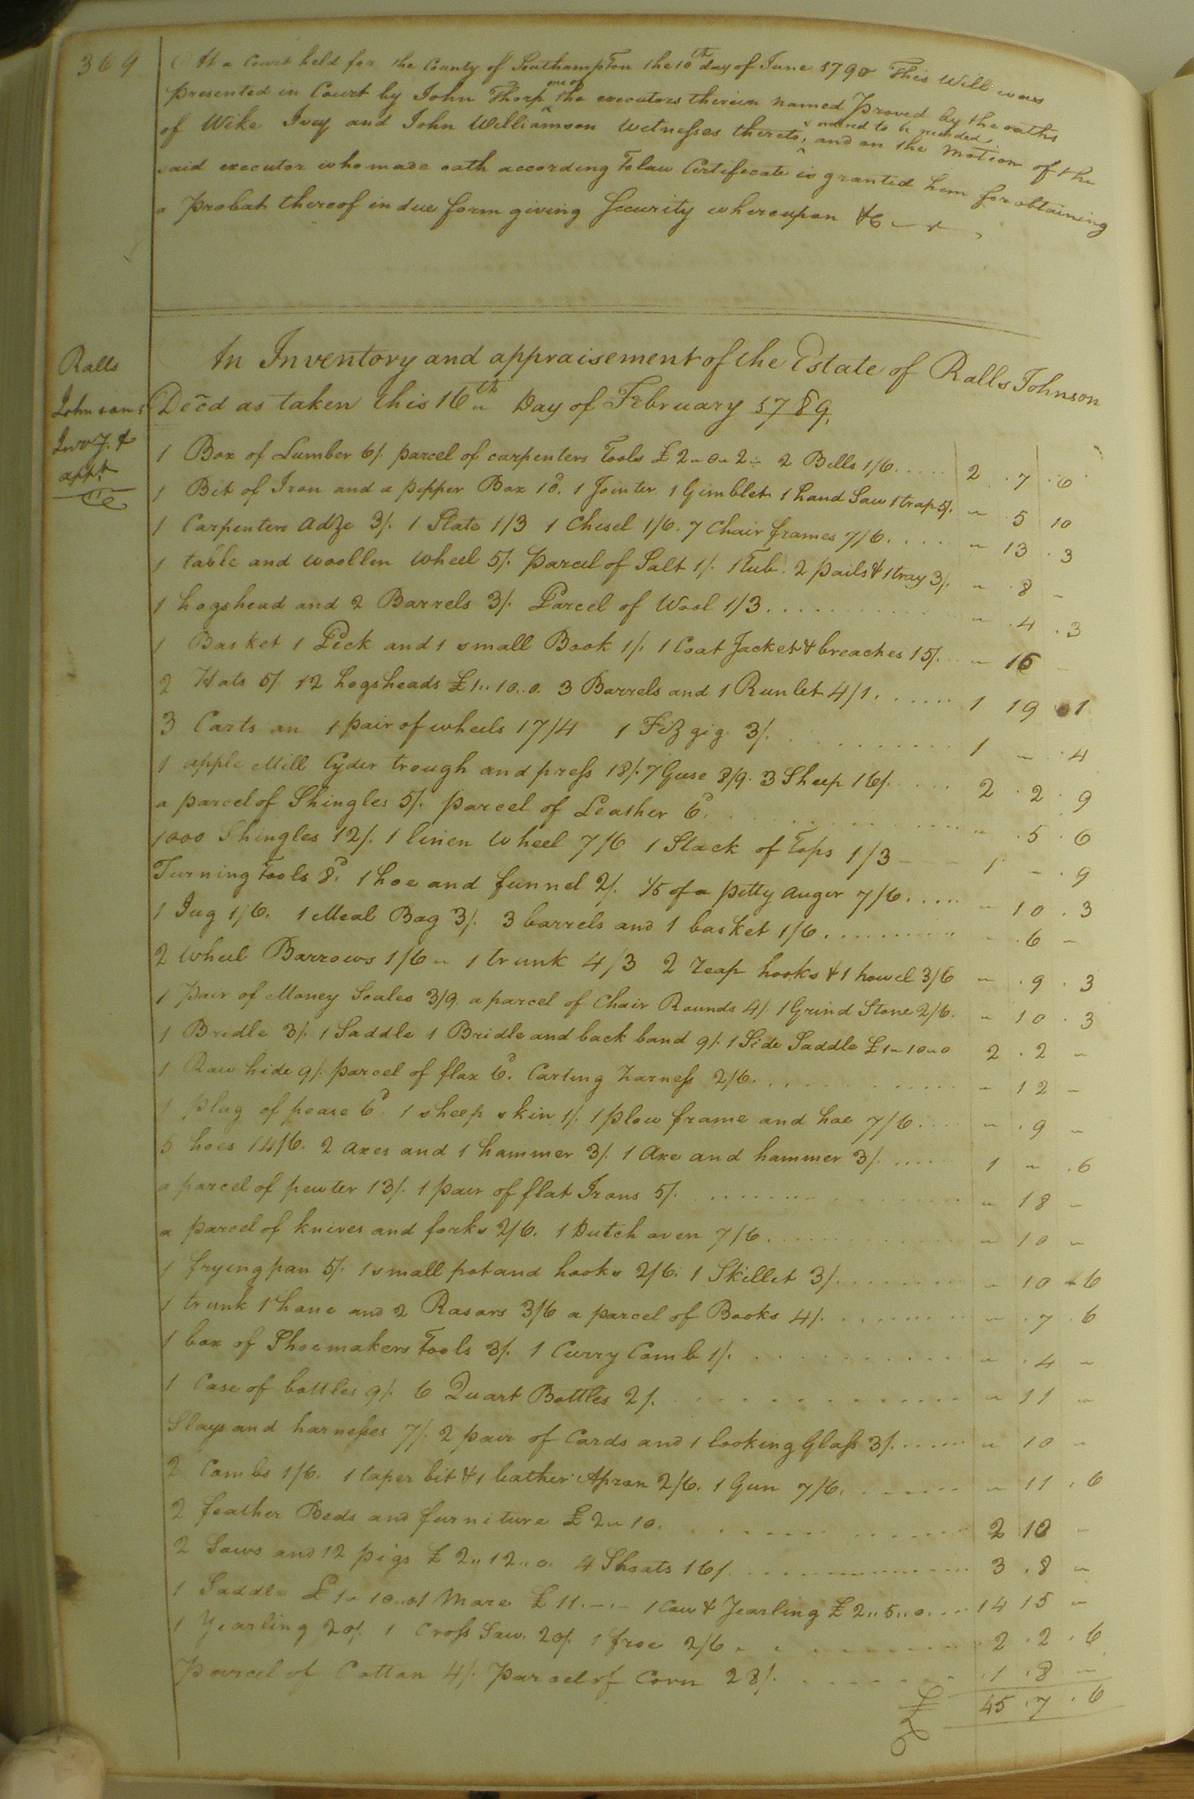 369
At a Court held for the County of Southampton the 10th day of June 1790 This Will was
presented in Court by John Thorp one of the executors therein named Proved by the oaths
of Wike Ivey and John Williamson Witnesses thereto, and ordered to be recorded, and on the Motion of the
said executor who made oath according to law Certificate is granted him for obtaining
a Probat thereof in due form giving Security whereupon &c
Ralls
Johnsons
Invy. &
appt.
An Inventory and appraisement of the Estate of Ralls Johnson
Decd as taken this 16th Day of February 1789.
1 Box of Lumber 6/. parcel of carpenters Tools £ 2 " 0 " 2 2 Bells 1/6 2 . 7 . 6
1 Bit of Iron and a pepper Box 10d. 1 Jointer 1 Gimblet 1 hand Saw 1 trap 5/. " 5 10
1 Carpenters Adze 3/. 1 Slate 1/3 1 Chisel 1/6. 7 Chair frames 7/6. " 13 . 3
1 table and woollen wheel 5/. parcel of Salt 1/. 1 Tub. 2 pails & 1 tray 3/. " . 8 "
1 hogshead and 2 Barrels 3/. Parcel of Wool 1/3 " . 4 . 3
1 Basket 1 Peck and 1 small Book 1/. 1 Coat Jacket & breaches 15/. " 16
2 Hats 5/. 12 hogsheads £ 1 .. 10 .. 0. 3 Barrels and 1 Runlet 4/1. 1 19 . 1
3 Carts an 1 pair of wheels 17/4 1 Fizgig 3/. 1 " . 4
1 apple Mill Cyder trough and press 18/. 7 Geese 8/9. 3 Sheep 16/. 2 . 2 . 9
a parcel of Shingles 5/. parcel of Leather 6d. " . 5 . 6
1000 Shingles 12/. 1 linen Wheel 7/6 1 Stack of Tops 1/3 1 " . 9
Turning Tools 8d. 1 hoe and funnel 2/. 1/5 of a pitty Auger 7/6. " 10 . 3
1 Jug 1/6. 1 Meal Bag 3/. 3 barrels and 1 basket 1/6 " . 6 "
2 wheel Barrows 1/6 " 1 trunk 4/3 2 reap hooks & 1 howel 3/6 " . 9 . 3
1 Pair of Money Scales 3/9 a parcel of Chair Rounds 4/. 1 Grind Stone 2/6. " 10 . 3
1 Bredle 3/. 1 Saddle 1 Bridle and back band 9/. 1 Side Saddle £ 1 " 10 " 0 2 . 2 "
1 Raw hide 9/. parcel of flax 6d. Carting harness 2/6. " 12 "
1 plug of pease 6d. 1 sheep skin 1/. 1 plow frame and hoe 7/6 " . 9 "
5 hoes 14/6. 2 axes and 1 hammer 3/. 1 Axe and hammer 3/. 1 " . 6
a parcel of pewter 13/. 1 pair of flat Irons 5/. " 18 "
a parcel of knives and forks 2/6. 1 Dutch oven 7/6. " 10 "
1 frying pan 5/. 1 small pot and hooks 2/6. 1 Skillet 3/. " 10 " 6
1 trunk 1 hone and 2 Rasors 3/6 a parcel of Books 4/. " . 7 . 6
1 box of Shoemakers Tools 3/. 1 Curry Comb 1/. " . 4 "
1 Case of bottles 9/. 6 Quart Bottles 2/. " 11 "
Slays and harnesses 7/. 2 pair of Cards and 1 looking Glass 3/. " 10 "
2 Combs 1/6. 1 taper bit & 1 leather Apron 2/6. 1 Gun 7/6. " 11 . 6
2 feather Beds and furniture £ 2 " 10. 2 10 "
2 Sows and 12 pigs £ 2 " 12 " 0. 4 Shoats 16/. 3 . 8 "
1 Saddle £ 1 " 10 " 0 1 Mare £ 11 . " . " 1 Cow & Yearling £ 2 " 5 " 0. 14 15 "
1 Yearling 20/. 1 Cross Saw. 20/. 1 froe 2/6 2 . 2 . 6
Parcel of Cotton 4/. Parcel of Corn 28/. . 1 . 8 "
£ 45 . 7 . 6